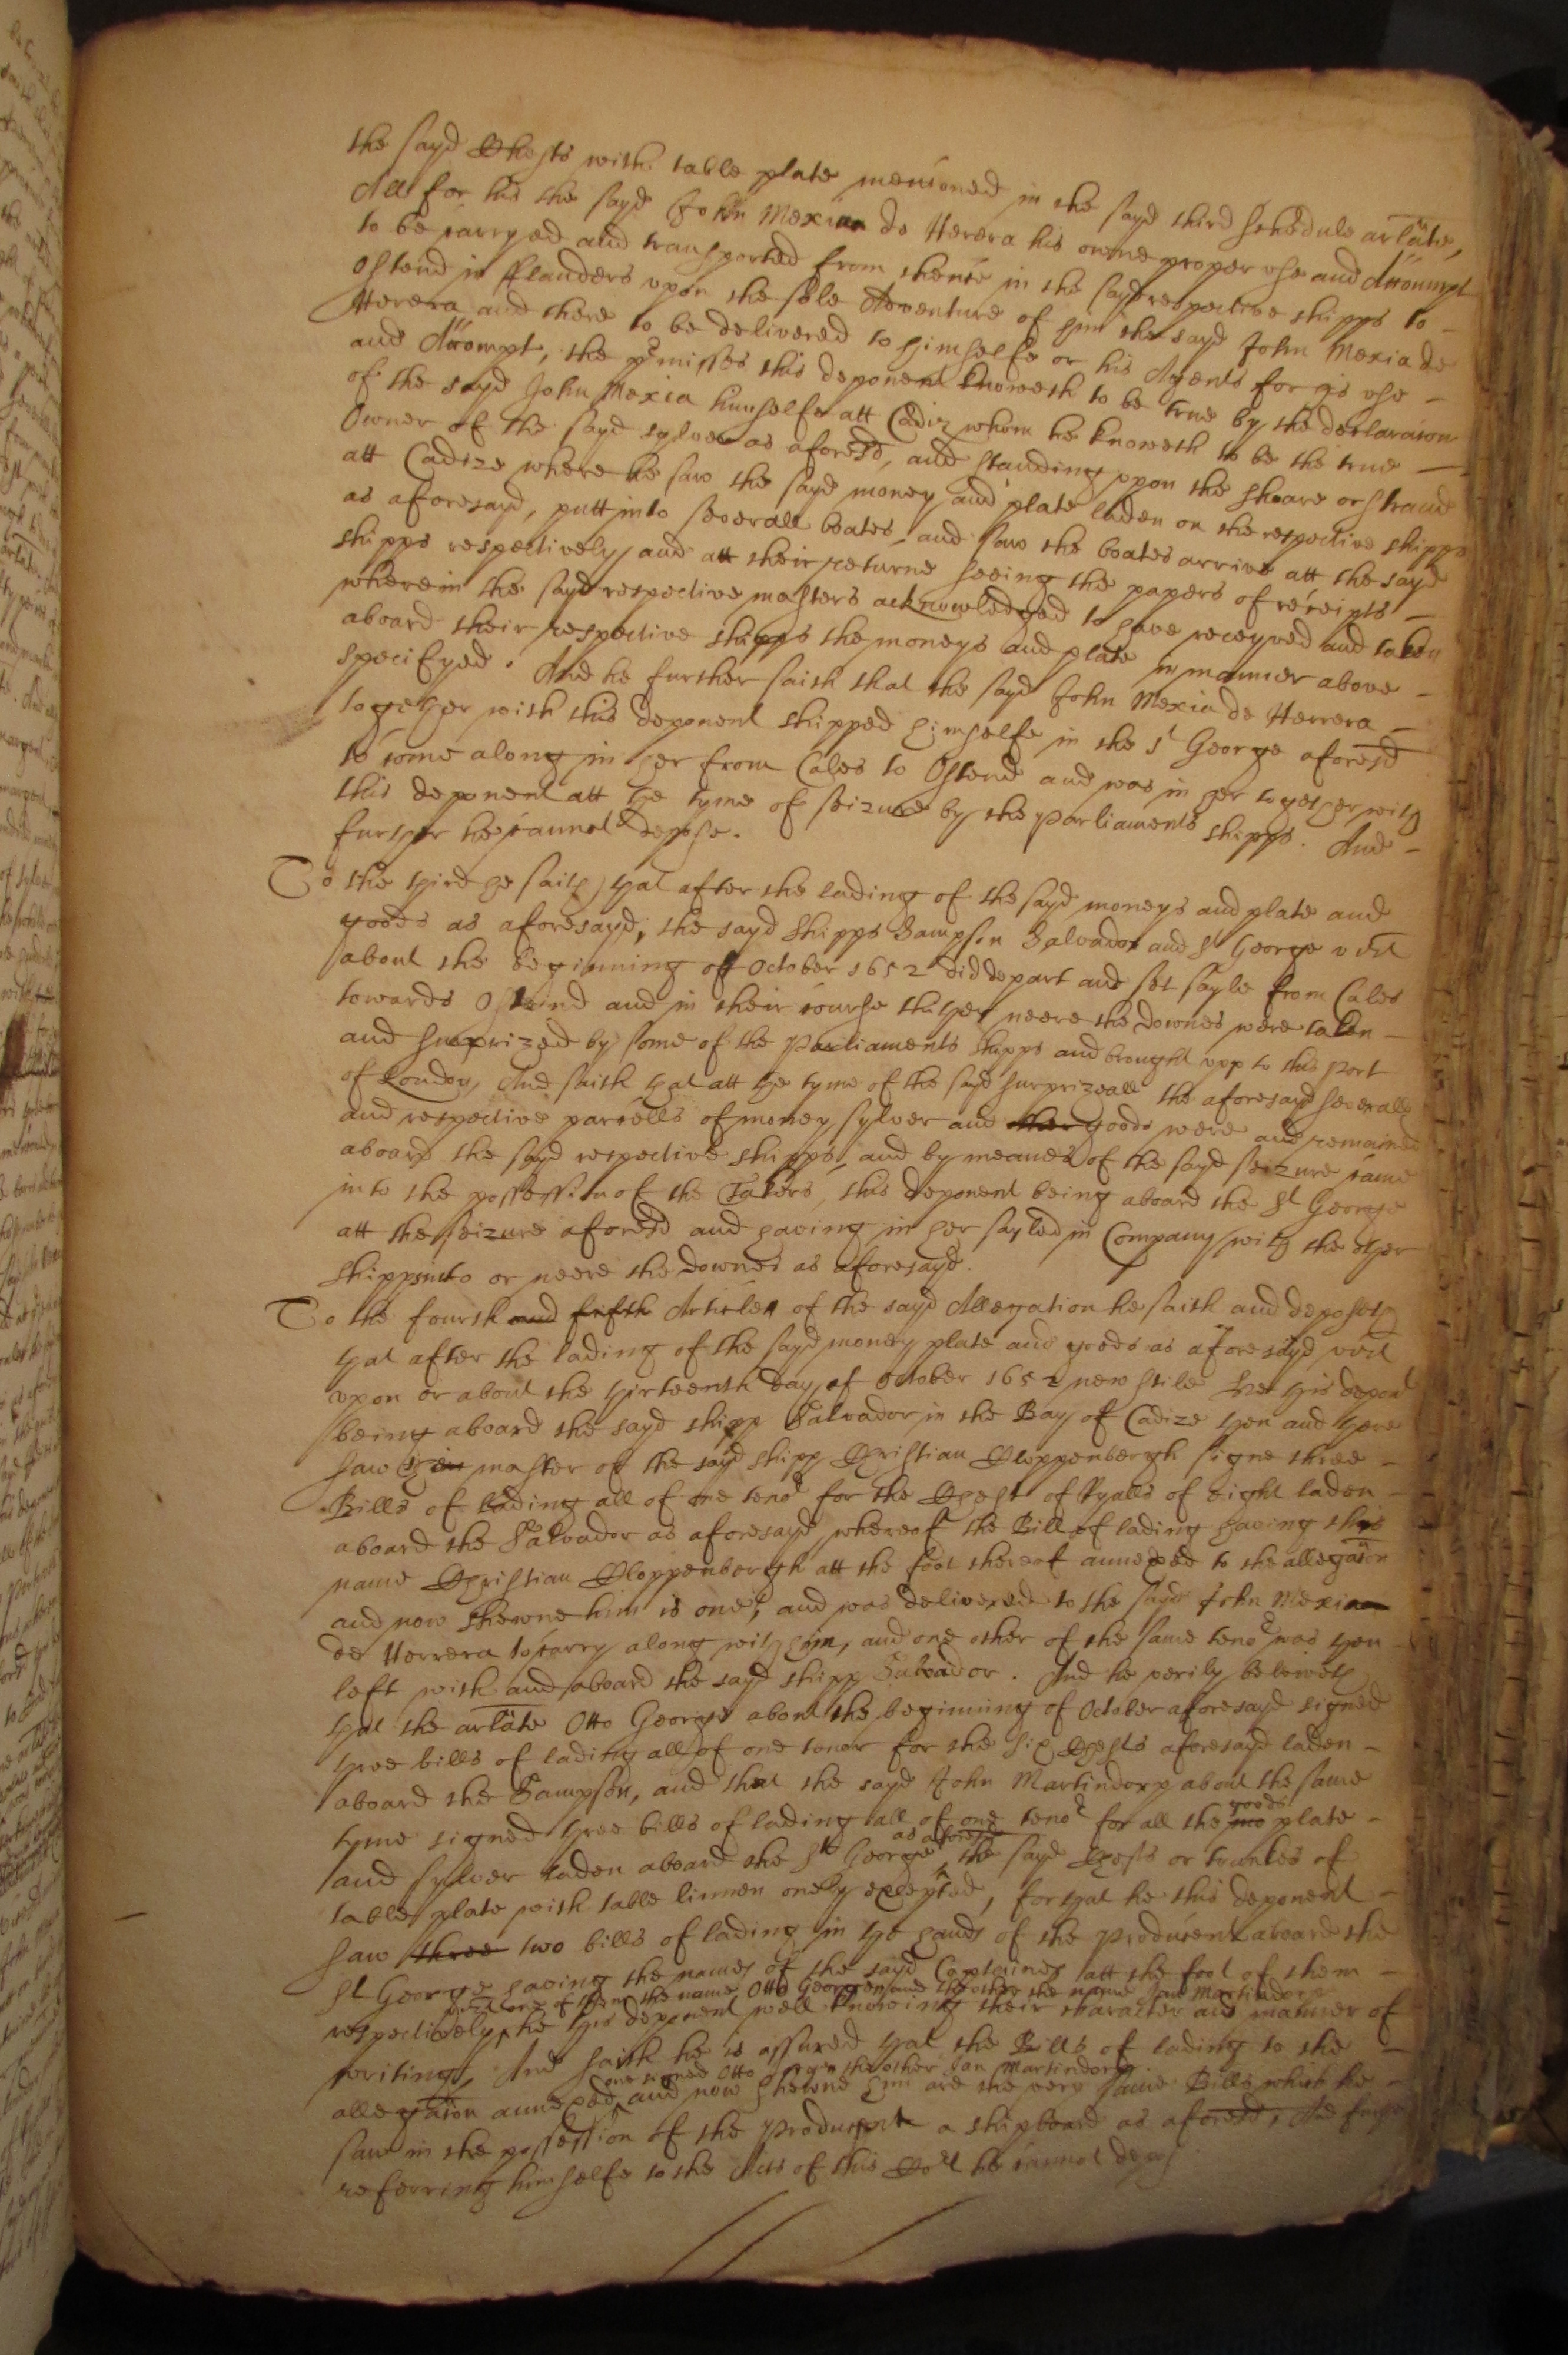 the sayd Chests with table plate menconed in the sayd third schedule arlate,
All for his the sayd John Mexia de Herera his owne proper use and Accompt
to be carryed and transported from thence in the sayd respective shipps to -
Ostend in fflanders upon the sole Adventure of him the sayd John Mexia de
Herera and there to be delivered to himselfe or his Agents for his use -
and Accompt, the premisses this deponent knoweth to be true by the declaracon
of the sayd John Mexia himselfe att Cadiz whom he knoweth to be the true -
Owner of the sayd sylver as aforesd, and standing upon the shoare or strand
att Cadize where he saw the sayd money and plate laden on the respective shipps
as aforesayd, putt into severall boates and saw the boates arrive att the sayd
shipps respectively and att their returne seeing the papers of receipts -
wherein the sayd respective masters acknowledged to have receyved and taken
aboard their respective shipps the moneys and plate in manner above -
specifyed. And he further saith that the sayd John Mexia de Herrera -
together with this deponent shipped himselfe in the St George aforesd
to come along in her from Cales to Ostend and was in her together with
this deponent att the tyme of seizure by the Parliaments shipps. And -
further hee cannot depose.
To the third he saith that after the lading of the sayd moneys and plate and
goods as aforesayd, the sayd shipps Sampson Salvador and St George vizt
about the beginning of October 1652 did depart and set sayle from Cales
towards Ostend and in their course thither neere the Downes were taken -
and surprized by some of the Parliaments shipps and brought upp to this Port
of London, And saith that att the tyme of the sayd surprizeall the aforesayd severall
and respective parcells of money sylver and other goods were and remained
aboard the sayd respective shipps, and by meanes of the sayd seizure came
into the possession of the Takers, this deponent being aboard the St George
att the seizure aforesd and having in her sayled in Company with the other
shipps into or neere the Downes as aforesayd.
To the fourth and fifth Articles of the sayd Allegation he saith and deposeth
that after the lading of the sayd money plate and goods as aforesayd vizt
upon or about the thirteenth day of October 1652 new stile hee this depont
being aboard the sayd shipp Salvador in the Bay of Cadize then and there
saw the master of the sayd shipp Christian Cloppenbergh signe three -
Bills of lading all of one tenor for the Chest of Ryalls of eight laden -
aboard the Salvador as aforesayd whereof the Bill of lading having this
name Christian Cloppenbergh att the foot thereof annexed to the allegacon
and now shewne him is one, and was delivered to the sayd John Mexia
de Herrera to carry along with him, and one other of the same tenor was then
left with and aboard the sayd shipp Salvador. And he verily beleiveth
that the arlate Otto George about the beginning of October aforesayd signed
three bills of lading all of one tenor for the six Chests aforesayd laden -
aboard the Sampson, and that the sayd John Martindorp about the same
tyme signed three bills of lading all of one tenor for all the goods plate -
and sylver laden aboard the St George as aforesd the sayd Chests or trunkes of
table plate with table linnen onely excepted, for that he this deponent -
saw three two bills of lading in the hands of the Producent aboard the
St George having the names of the sayd Captaines att the foot of them -
vizt one of them the name Otto Georgen and the other the name Jan Martindorp
respectively, he this deponent well knowing their character and manner of
writing, And saith he is assured that the Bills of lading to the -
one signed Otto Georgen the other Jan Martindorp
allegacon annexed and now shewne him are the very same Bills which he -
saw in the possession of the Producent a shipboard as aforesd, And further
referring himselfe to the Acts of this Cort he cannot depose